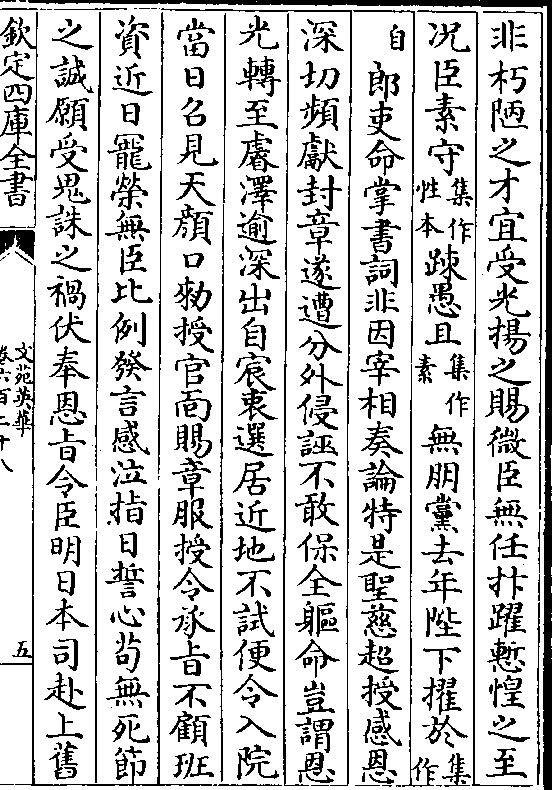 非朽陋之才宜受光揚之賜微臣無任抃躍慙惶之至
况臣素守集作性本踈愚且集作素無朋黨去年陛下擢於集作
自郎吏命掌書詞非因宰相奏論特是聖慈超授感恩
深切頻獻封章遂遭分外侵誣不敢保全軀命豈謂恩
光轉至膚澤逾深出自宸衷選居近地不試便令入院
當日召見天顔口勑授官面賜章服授令承㫖不顧班
資近日寵榮無臣比例發言感泣指日誓心茍無死節
之誠願受鬼誅之禍伏奉恩㫖令臣明日本司赴上舊
欽定四庫全書
文苑英華
卷六百二十八
五